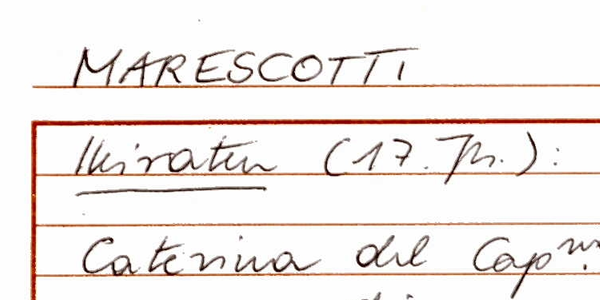 MARESCOTTI
Heiraten (17. Jh.):
Caterina del Cap.